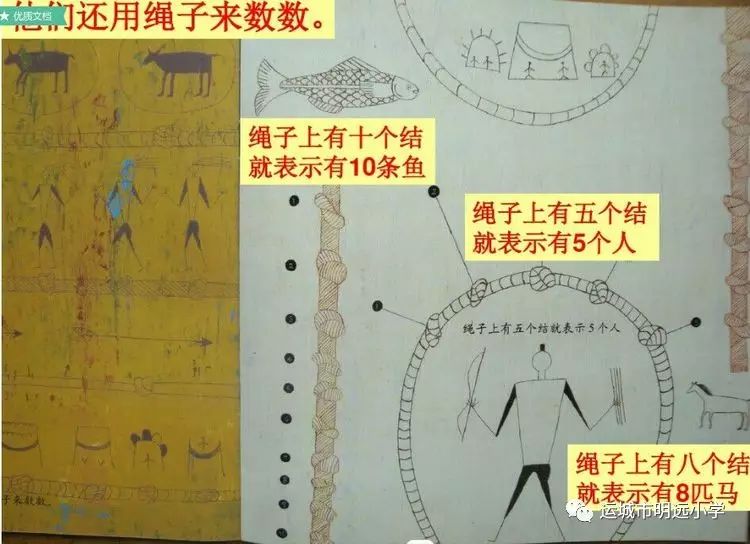 优质文档
他们还用绳子来数数。
绳子上有十个结
就表示有10条鱼
绳子上有五个结
就表示有5个人
绳子上有五个结就表示5个人
绳子上有八个结
就表示有8匹马
子来数数。
运城市明远小学